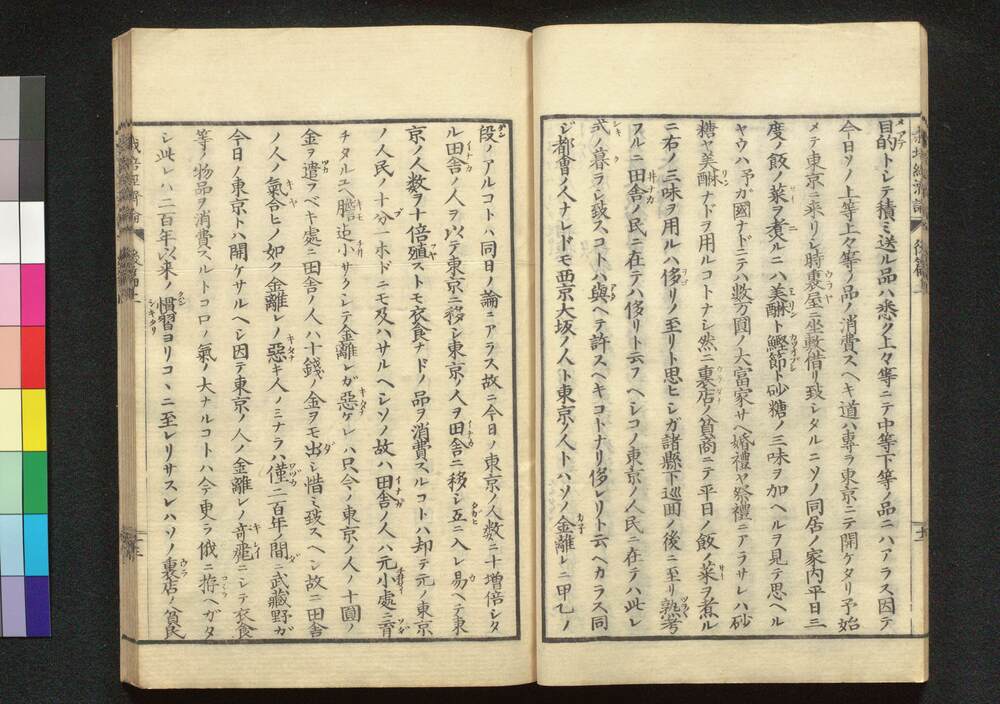 目的トシテ積ミ送ル品ハ悉ク上々等ニテ中等下等ノ品ニハアラス因テ
今日ソノ上等上々等ノ品ノ消費スヘキ道ハ專ラ東京ニテ開ケタリ予始
メテ東京ニ来リシ時裏屋ニ坐敷借リ致シタルニソノ同居ノ家内平日三
度ノ飯ノ菜ヲ煮ルニハ美醂ト鰹節ト砂糖ノ三味ヲ加ヘルヲ見テ思ヘル
ヤウハ予ガ國ナドニテハ数万圓ノ大富家サヘ婚禮ヤ祭禮ニアラサレハ砂
糖ヤ美醂ナドヲ用ルコトナシ然ニ裏店ノ貧商ニテ平日ノ飯ノ菜ヲ煮ル
ニ右ノ三味ヲ用ルハ侈リノ至リト思ヒシガ諸縣下巡回ノ後ニ至リ熟考
フルニ田舎ノ民ニ在テハ侈リト云フヘシコノ東京ノ人民ニ在テハ此レ
式ノ暮ラシ致スコトハ與ヘテ許スヘキコトナリ侈レリト云ヘカラス同
ジ都會ノ人ナレドモ西京大坂ノ人ト東京ノ人トハソノ金離レニ甲乙ノ
段ノアルコトハ同日ノ論ニアラス故ニ今日ノ東京ノ人数ニ十増倍シタ
ル田舎ノ人ヲ以テ東京ニ移シ東京ノ人ヲ田舎ニ移シ互ニ入レ易ヘテ東
京ノ人数ヲ十倍殖ストモ衣食ナドノ品ヲ消費スルコトハ却テ元ノ東京
ノ人民ノ十分一ホドニモ及ハサルヘシソノ故ハ田舎ノ人ハ元小處ニ育
チタルユヘ膽モ小サクシテ金離レガ惡ケレハ只今ノ東京ノ人ノ十圓ノ
金ヲ遣フベキ處ニ田舎ノ人ハ十錢ノ金ヲモ出シ惜ミ致スヘシ故ニ田舎
ノ人ノ氣合ヒノ如ク金離レノ惡キ人ノミナラハ僅ニ百年ノ間ニ武藏野ガ
今日ノ東京トハ開ケサルヘシ因テ東京ノ人ノ金離レノ奇飛ニシテ衣食
等ノ物品ヲ消費スルトコロノ氣ノ大ナルコトハ今更ラ俄ニ拵ヘガタ
シ此レハ二百年以来ノ慣習ヨリコヽニ至レリサスレハソノ裏店ノ貧民